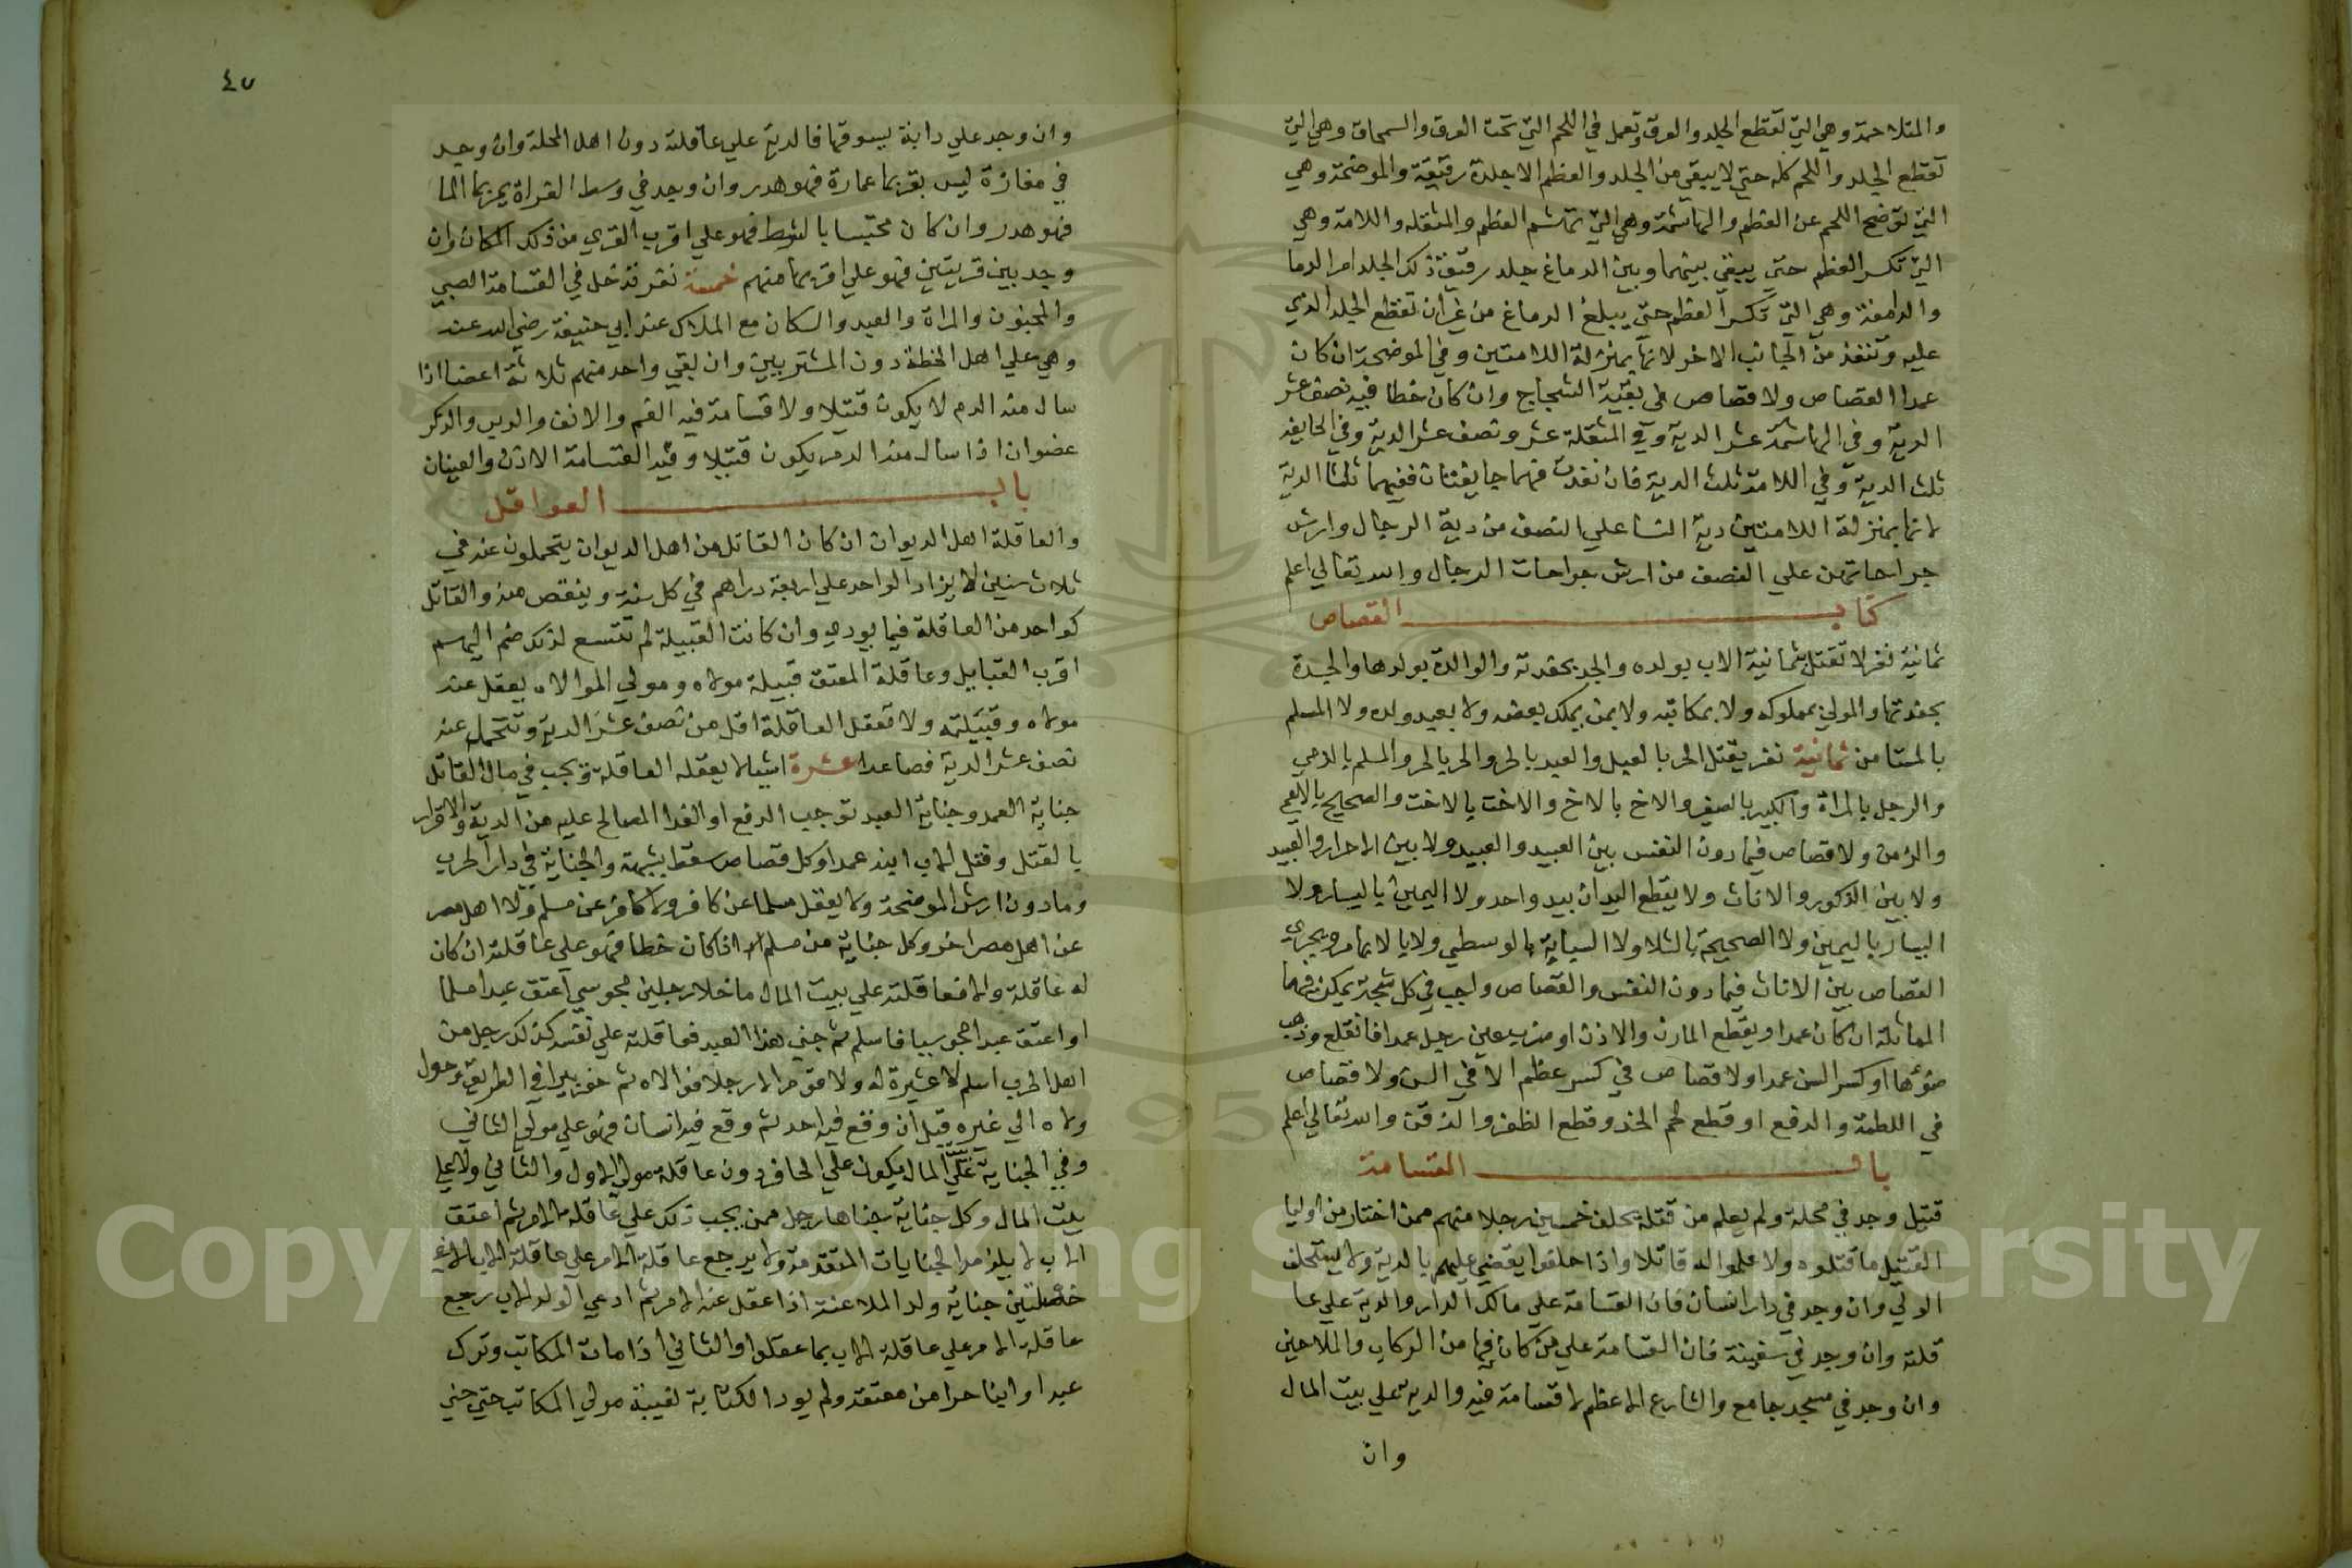 والمتلاحمة وهي التي تقطع الجلد والعرق وتعمل في اللحم التي تحت العرق والسمحاق وهي التي
تقطع الجلد واللحم كله حتي لا يبقي من الجلد والعظم الا جلدة رقيقة والموضحة وهي
التي توضح اللحم عن العظم والهاشمة وهي التي تهاشم العظم والمنقله واللامة وهي
التي تكسر العظم حتي يبقي بينهما وبين الدماغ جلد رقيق ذلك الجلد ام الدما
والدامغة وهي التي تكسر العظم حتي يبلغ الدماغ من غير ان تقطع الجلد الذي
عليه وتنفذ من الجانب الاخر لانها بمنزلة اللامتين وفي الموضحة ان كان
عمدا القصاص ولا قصاص في بقية الشجاج وان كان خطا فيه نصف عشر
الدية وفي الهاشمة عشر الدية وفي المنقلة عشر ونصف عشر الدية وفي الجايفه
ثلث الدية وفي اللامة ثلث الدية فان نفذت فهما جايفتان ففيهما ثلثا الدية
لانها بمنزلة اللامتين دية النسا علي النصف من دية الرجال وارش
جراحاتهن علي النصف من ارش جراحات الرجال والله تعالي اعلم
كتاب القصاص
ثمانية نفر لا تقتل بثمانية الاب بولده والجد بحفدته والوالدة بولدها والجدة
بحفدتها والمولي بمملوكه ولا بمكاتبه ولا بمن يملك بعضه ولا بعبد ولده ولا المسلم
بالمستامن ثمانية نفر يقتل الحر بالعبد والعبد بالحر والحر بالحر والمسلم بالذمي
والرجل بالمراة والكبير بالصغير والاخ بالاخ والاخت بالاخت والصحيح بالاعمي
والزمن ولا قصاص فيما دون النفس بين العبيد والعبيد ولا بين الاحرار والعبيد
ولا بين الذكور والاناث ولا يقطع اليدان بيد واحد ولا اليمين باليسار ولا
اليسار باليمين ولا الصحيحة بالشلا ولا السبابة بالوسطي ولا بالابهام ويجري
القصاص بين الاناث فيما دون النفس والقصاص واجب في كل شجة يمكن فيها
المماثلة ان كان عمدا ويقطع المارن والاذن او ضرب عين رجل عمدا فانقلع وذهب
ضوءها او كسر السن عمدا ولا قصاص في كسر عظم الا في السن ولا قصاص
في اللطمة والدفع او قطع لحم الخد وقطع الظفر والذقن والله تعالي اعلم
باب القسامة
قتيل وجد في محلة ولم يعلم من قتله يحلف خمسين رجلا منهم ممن اختار من اوليا
القتيل ما قتلوه ولا علموا له قاتلا واذا حلفوا يقضي عليهم بالدية ولا يستحلف
الولي وان وجد في دار انسان فان القسامة علي مالك الدار والدية علي عا
قلته وان وجد في سفينة فان القسامة علي من كان فيها من الركاب والملاحين
وان وجد في مسجد جامع والشارع الاعظم لا قسامة فيه والدية علي بيت المال
وان
٤٥
وان وجد علي دابة يسوقها فالدية علي عاقلته دون اهل المحلة وان وجد
في مفازة ليس بقربها عمارة فهو هدر وان وجد في وسط الفراة يمر بها الما
فهو هدر وان كان محتبسا بالشط فهو علي اقرب القري من ذلك المكان وان
وجد بين قريتين فهو علي اقربهما منهم خمسة نفر تدخل في القسامة الصبي
والمجنون والمراة والعبد والسكان مع الملاك عند ابي حنيفة رضي الله عنه
وهي علي اهل الخطة دون المشتريين وان بقي واحد منهم ثلاثة اعضا اذا
سال منه الدم لا يكون قتيلا ولا قسامة فيه الفم والانف والدبر والذكر
عضوان اذا سال منه الدم يكون قتيلا وفيه القسامة الاذن والعينان
باب العواقل
والعاقلة اهل الديوان ان كان القاتل من اهل الديوان يتحملون عنه في
ثلاث سنين لا يزاد الواحد علي اربعة دراهم في كل سنة وينقص منه والقاتل
كواحد من العاقلة فيما يودي وان كانت القبيلة لم تتسع لذلك ضم اليهم
اقرب القبايل وعاقلة المعتق قبيلة مولاه ومولي الموالاه يعقل عنه
مولاه وقبيلته ولا تعقل العاقلة اقل من نصف عشر الدية وتتحمل عنه
نصف عشر الدية فصاعدا عشرة اشيا لا يعقله العاقلة ويجب في مال القاتل
جناية العمد وجناية العبد توجب الدفع او الفدا المصالح عليه من الدية والاقرار
بالقتل وقتل الاب ابنه عمدا وكل قصاص سقط بشبهة والجناية في دار الحرب
وما دون ارش الموضحة ولا يعقل مسلما عن كافر ولا كافر عن مسلم ولا اهل مصر
عن اهل مصر اخر وكل جناية من مسلم اذا كان خطا فهو علي عاقلته ان كان
له عاقلة والا فعاقلته علي بيت المال ما خلا رجلين مجوسي اعتق عبدا مسلما
او اعتق عبدا مجوسيا فاسلم ثم جني هذا العبد فعاقلته علي نفسه كذلك رجل من
اهل الحرب اسلم لا عشيرة له ولا رجلا فوالاه ثم حفر بيرا في الطريق وحول
ولاه الي غيره قبل ان وقع فيه احد ثم وقع فيه انسان فهو علي مولي الثاني
وفي الجناية علي المال يكون علي الحافر دون عاقلة مولي الاول والثاني ولا علي
بيت المال وكل جناية جناها رجل ممن يجب ذلك علي عاقلة الام ثم اعتق
الاب لا يلزم الجنايات المتقدمة ولا يرجع عاقلة الام علي عاقلة الاب الا في
خصلتين جناية ولد الملاعنة اذا عقل عنه الام ثم ادعي الولد الاب رجع
عاقلة الام علي عاقلة الاب بما عقلوا والثاني اذا مات المكاتب وترك
عبدا وابنا حرا من معتقه ولم يودا الكتابة لغيبة مولي المكاتب حتي جني
Copyright © King Saud University